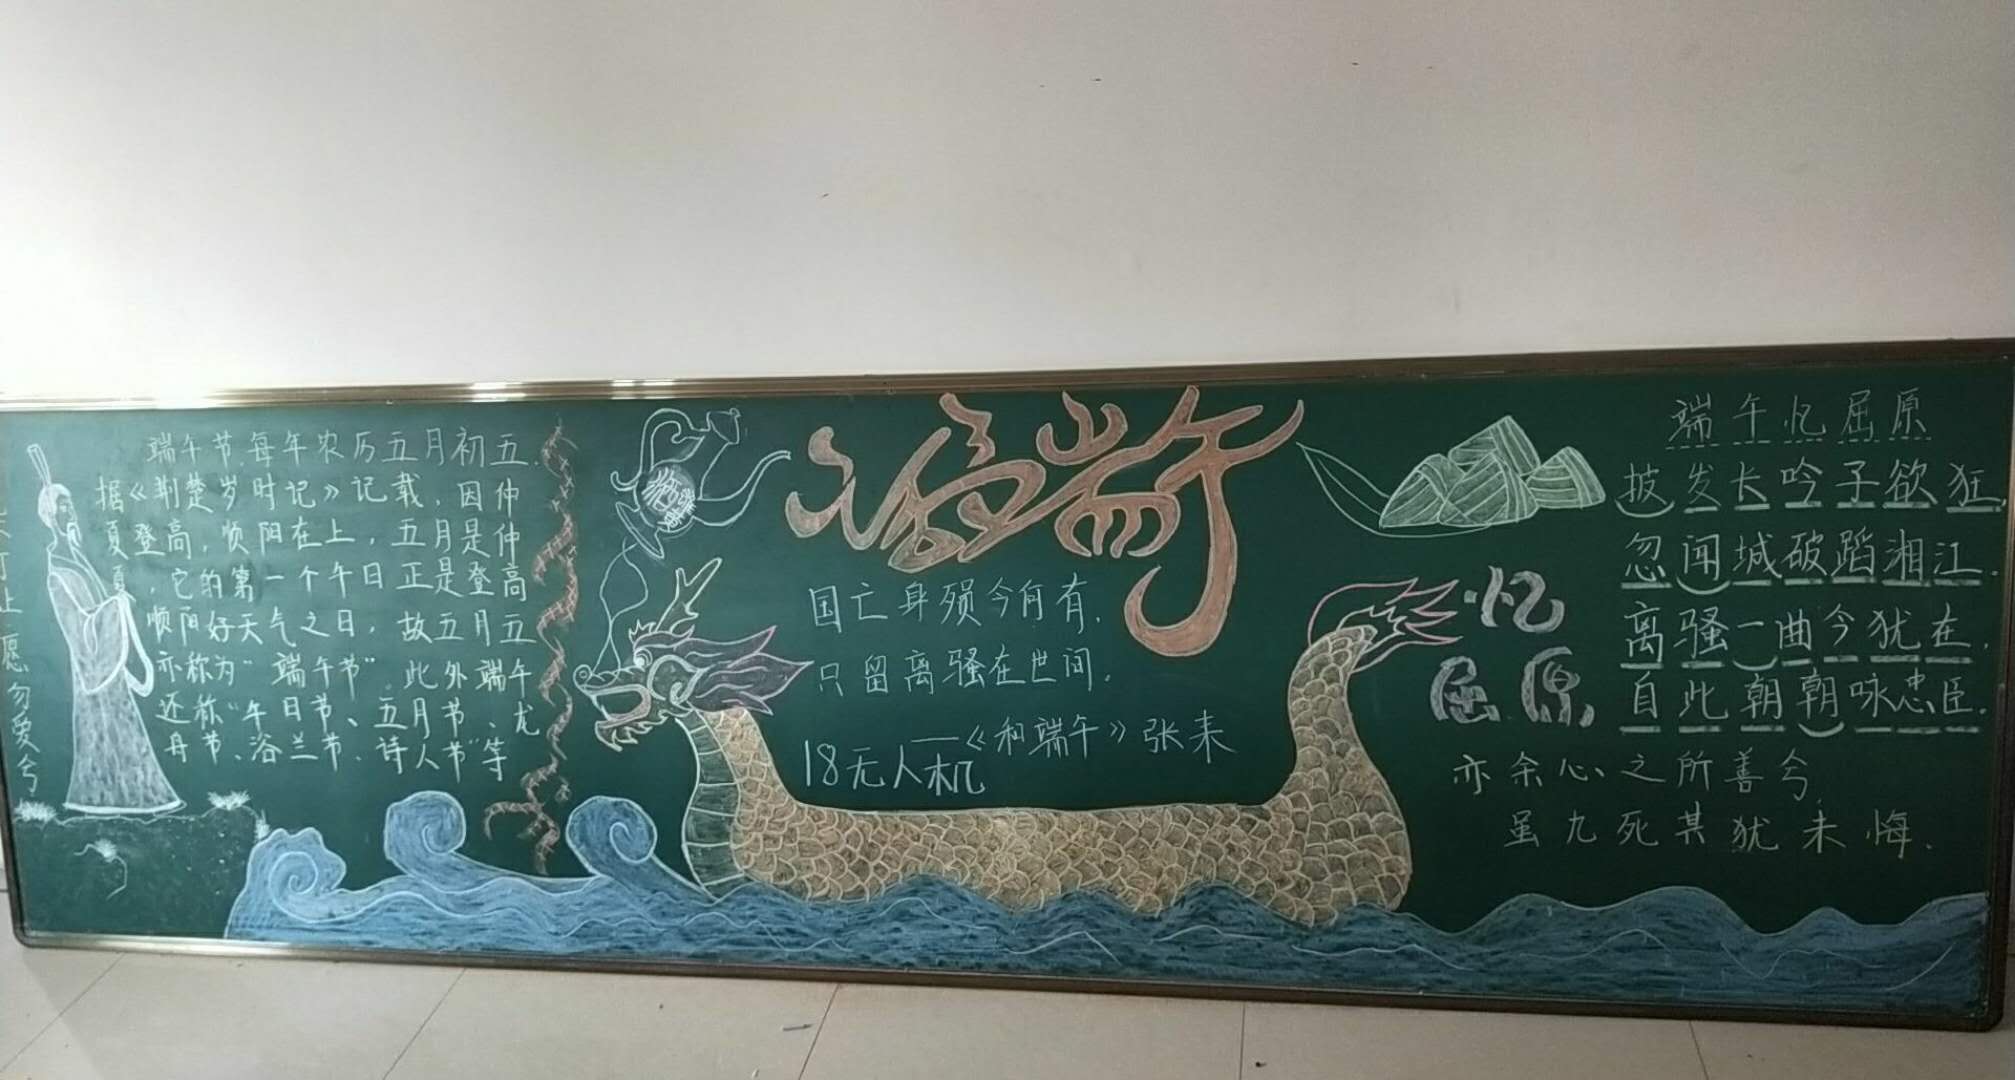 端午节,每年农历五月初五.
据《荆楚岁时记》记载,因仲
夏登高,顺阳在上,五月是仲
夏,它的第一个午日正是登高
顺阳好天气之日,故五月五
亦称为“端午节”。此外端午
还称“午日节、五月节、龙
舟节、浴兰节、诗人节”等
愿勿爱兮
端午
国亡身殒今何有,
只留离骚在世间.
——《和端午》张耒
18无人机
忆
屈原
端午忆屈原
披发长吟子欲狂,
忽闻城破蹈湘江.
离骚一曲今犹在,
自此朝朝咏忠臣.
亦余心之所善兮
虽九死其犹未悔.